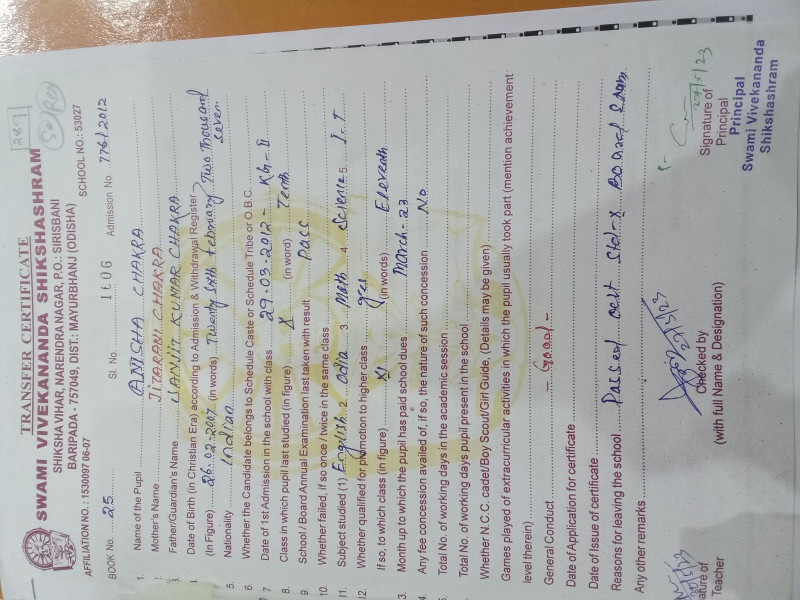 TRANSFER CERTIFICATE
SWAMI VIVEKANANDA SHIKSHASHRAM
SHIKSHA VIHAR, NARENDRA NAGAR, P.O.: SIRISBANI
BARIPADA - 757049, DIST: MAYURBHANJ (ODISHA)
AFFILIATION NO. : 1530097 06-07 SCHOOL NO.: 53027
BOOK No. 25 Sl. No. 1606 Admission No. 776/2012
1. Name of the Pupil ANISHA CHAKRA
Mother's Name JITARANI CHAKRA
3. Father/Guardian's Name SANJIT KUMAR CHAKRA
Date of Birth (in Christian Era) according to Admission & Withdrawal Register
(In Figure) 26-02-2007 (in words) Twenty Sixth February Two Thousand Seven
5. Nationality Indian
6. Whether the Candidate belongs to Schedule Caste or Schedule Tribe or O.B.C.
7. Date of 1st Admission in the school with class 29-03-2012 - KG-II
8. Class in which pupil last studied (in figure) X (in word) Tenth
9. School / Board Annual Examination last taken with result Pass
10. Whether failed, if so once / twice in the same class
11. Subject studied (1) English 2. Odia 3. Math 4. Science 5. I-T
12. Whether qualified for promotion to higher class yes
If so, to which class (in figure) XI (in words) Eleventh
3. Month up to which the pupil has paid school dues March-23
4. Any fee concession availed of, if so, the nature of such concession No
Total No. of working days in the academic session
Total No. of working days pupil present in the school
Whether N.C.C. cadet/Boy Scout/Girl Guide, (Details may be given)
Games played of extracurricular activities in which the pupil usually took part (mention achievement
level therein)
General Conduct - Good -
Date of Application for certificate
Date of Issue of certificate
Reasons for leaving the school Passed out Std-X Board Exam
Any other remarks
Teacher
Checked by
(with full Name & Designation)
27/5/23
Signature of
Principal
Principal
Swami Vivekananda
Shikshashram